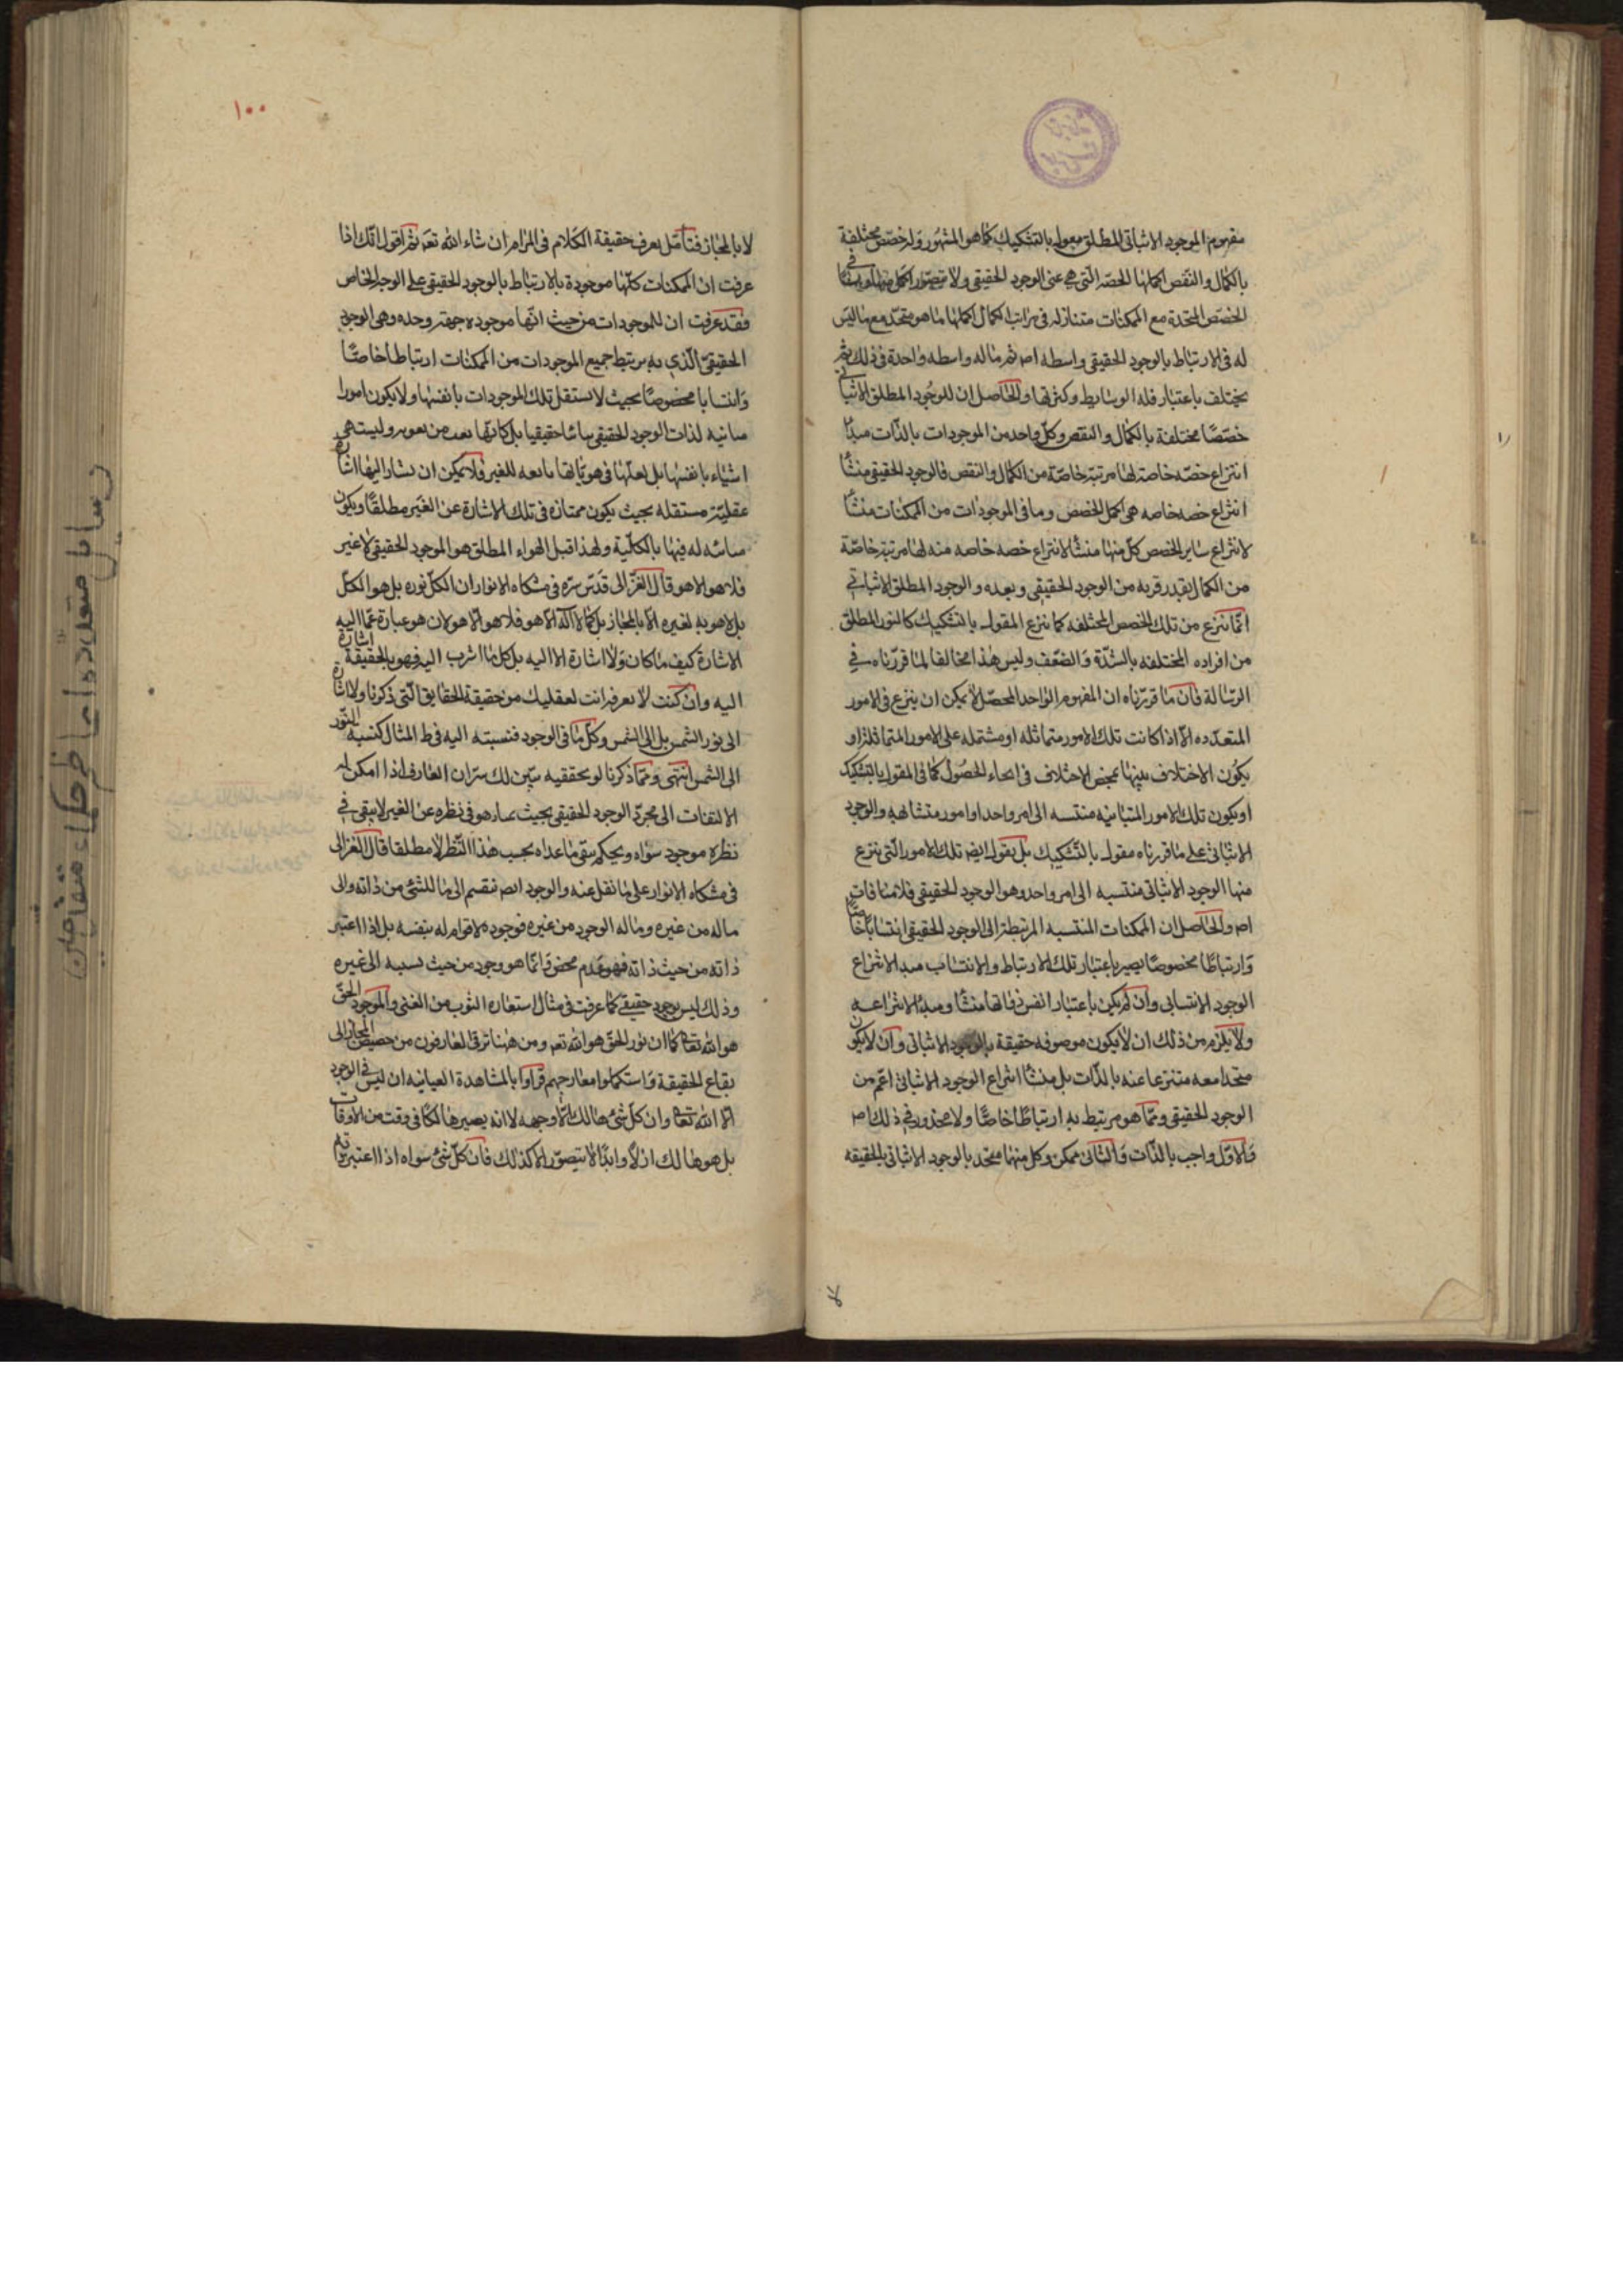 مفهوم الموجود الاثباتی المطلق مقول بالتشکیك کما هو المشهور وله حصص مختلفة
بالکمال والنقص اکملها الحصه التی هی عنی الوجود الحقیقی ولا یتصور اکمل منها
الحصص المتحدة مع الممکنات متنازله فی مراتب الکمال اکملها ما هو متحد مع ما لیس
له فی الارتباط بالوجود الحقیقی واسطه اصـ ثم ما له واسطه واحدة فی ذلك ثم
یختلف باعتبار قله الوسایط وکثرتها والحاصل ان للوجود المطلق الاثباتی
حصصًا مختلفة بالکمال والنقص وکل واحد من الموجودات بالذات مبدأ
انتزاع حصه خاصة لها مرتبة خاصّة من الکمال والنقص فالوجود الحقیقی منشأ
انتزاع حصه خاصه هی اکمل الحصص وما فی الموجودات من الممکنات منشأ
لانتزاع سایر الحصص کلّ منها منشأ لانتزاع حصه خاصه منه لها مرتبة خاصّة
من الکمال بقدر قربه من الوجود الحقیقی وبعده والوجود المطلق الاثباتی
انما ینزع من تلك الحصص المختلفه کما ینزع المقول بالتشکیك کالنور المطلق
من افراده المختلفه بالشدّة والضعف ولیس هذا مخالفا لما قررناه فی
الرسالة فان ما قررناه ان المفهوم الواحد المحصل لا یمکن ان ینزع فی الامور
المتعدده الّا اذا کانت تلك الامور متماثله او مشتمله علی الامور المتماثلة او
یکون الاختلاف بینها بمحض الاختلاف فی انحاء الحصول کما فی المقول بالتشکیك
او یکون تلك الامور المتباینه منتسبه الی امر واحد او امور متشابهه والوجود
الاثباتی علی ما قررناه مقول بالتشکیك بل نقول ایضـ تلك الامور التی ینزع
منها الوجود الاثباتی منتسبه الی امر واحد وهو الوجود الحقیقی فلا منافات
اصـ والحاصل ان الممکنات المنتسبه المرتبطة الی الوجود الحقیقی انتسابًا خاصًّا
وارتباطًا مخصوصًا یصیر باعتبار تلك الارتباط والانتساب مبدا لانتزاع
الوجود الانتسابی وان لم یکن باعتبار انفس ذواتها منشأ ومبدأ لانتزاعه
ولا یلزم من ذلك ان لا یکون موصوفه حقیقة بالوجود الاثباتی وان لا یکون
متحدا معه منتزعا عنه بالذات بل منشأ انتزاع الوجود الاثباتی اعّم من
الوجود الحقیقی وممّا هو مرتبط به ارتباطًا خاصًّا ولا محذور فی ذلك اصـ
والاوّل واجب بالذات والثانی ممکن وکل منهما متحد بالوجود الاثباتی بالحقیقه
لا
۱۰۰
لا بالمجاز فتأمّل یعرف حقیقة الکلام فی المرام ان شاء الله تعـ ثم اقول انّك اذا
عرفت ان الممکنات کلّها موجودة بالارتباط بالوجود الحقیقی علی الوجه الخاص
فقد عرفت ان للموجودات من حیث انّها موجوده جهة وحده وهی الوجود
الحقیقیّ الّذی به یرتبط جمیع الموجودات من الممکنات ارتباطًا خاصًّا
وانتسابا مخصوصًا بحیث لا یستقل تلك الموجودات بانفسها ولا یکون امورا
مباینه لذات الوجود الحقیقی بل کانّها ولیست هی
اشیاء بانفسها بل لعلّها فی هویاتها تابعه للغیر فلا یمکن ان یشار الیها اشارة
عقلیّة مستقله بحیث یکون ممتازه فی تلك الاشارة عن الغیر مطلقًا ویکون
مباینه له فیها بالکلّیة ولهذا قیل المطلق هو الموجود الحقیقی لا غیر
فلا هو الا هو قال الغزّالی قدّس سرّه فی مشکاه الانوار ان الکلّ نوره بل هو الکلّ
بل لا هویه لغیره الّا بالمجاز بل کما لا اله الّا هو فلا هو الّا هو لان هو عبارة عمّا الیه
الاشارة کیف ما کان ولا اشارة الا الیه بل کل ما اشرت الیه فهو بالحقیقة اشارة
الیه وان کنت لا تعرفه انت لغفلتك من حقیقة الحقایق الّتی ذکرنا ولا اشارة
الی نور الشمس بل الی الشمس وکلّ ما فی الوجود فنسبته الیه فی ظ المثال کنسبة النّور
الی الشمس انتهی وممّا ذکرنا لو یحققیه تبیّن لك سرّ ان العارف اذا امکن له
الالتفات الی مجرّد الوجود الحقیقی بحیث فی نظره عن الغیر لا یبقی فی
نظره موجود سواه ویحکم ما عداه بحسب هذا النّظر لا مطلقا قال الغزالی
فی مشکاه الانوار علی ما نقل عنه والوجود ایضـ ینقسم الی ما للشئ من ذاته والی
ما له من غیره وما له الوجود من غیره فوجوده لا قوام له بنفسه بل اذا اعتبر
ذاته من حیث ذاته فهو عدم محض وانّما هو وجود من حیث نسبه الی غیره
وذلك لیس بوجود حقیقی کما عرفت فی مثال استعاره الثوب من الغنی والموجود الحقّ
هو الله تعـ کما ان نور الحق هو الله تعـ ومن ههنا ترقی العارفون من حضیض المجاز الی
بقاع الحقیقة واستکملوا معارجهم فراوا بالمشاهدة العیانیه ان لیس فی الوجود
الا الله تعـ وان کلّ شئ هالك الّا وجهه لا انه یصیر هالکًا فی وقت من الاوقات
بل هو هالك ازلًا وابدًا لا یتصوّر الا کذلك فان کلّ شئ سواه اذا اعتبر ذاته
رسایل متعدده اعاظم حکماء متفاضلین